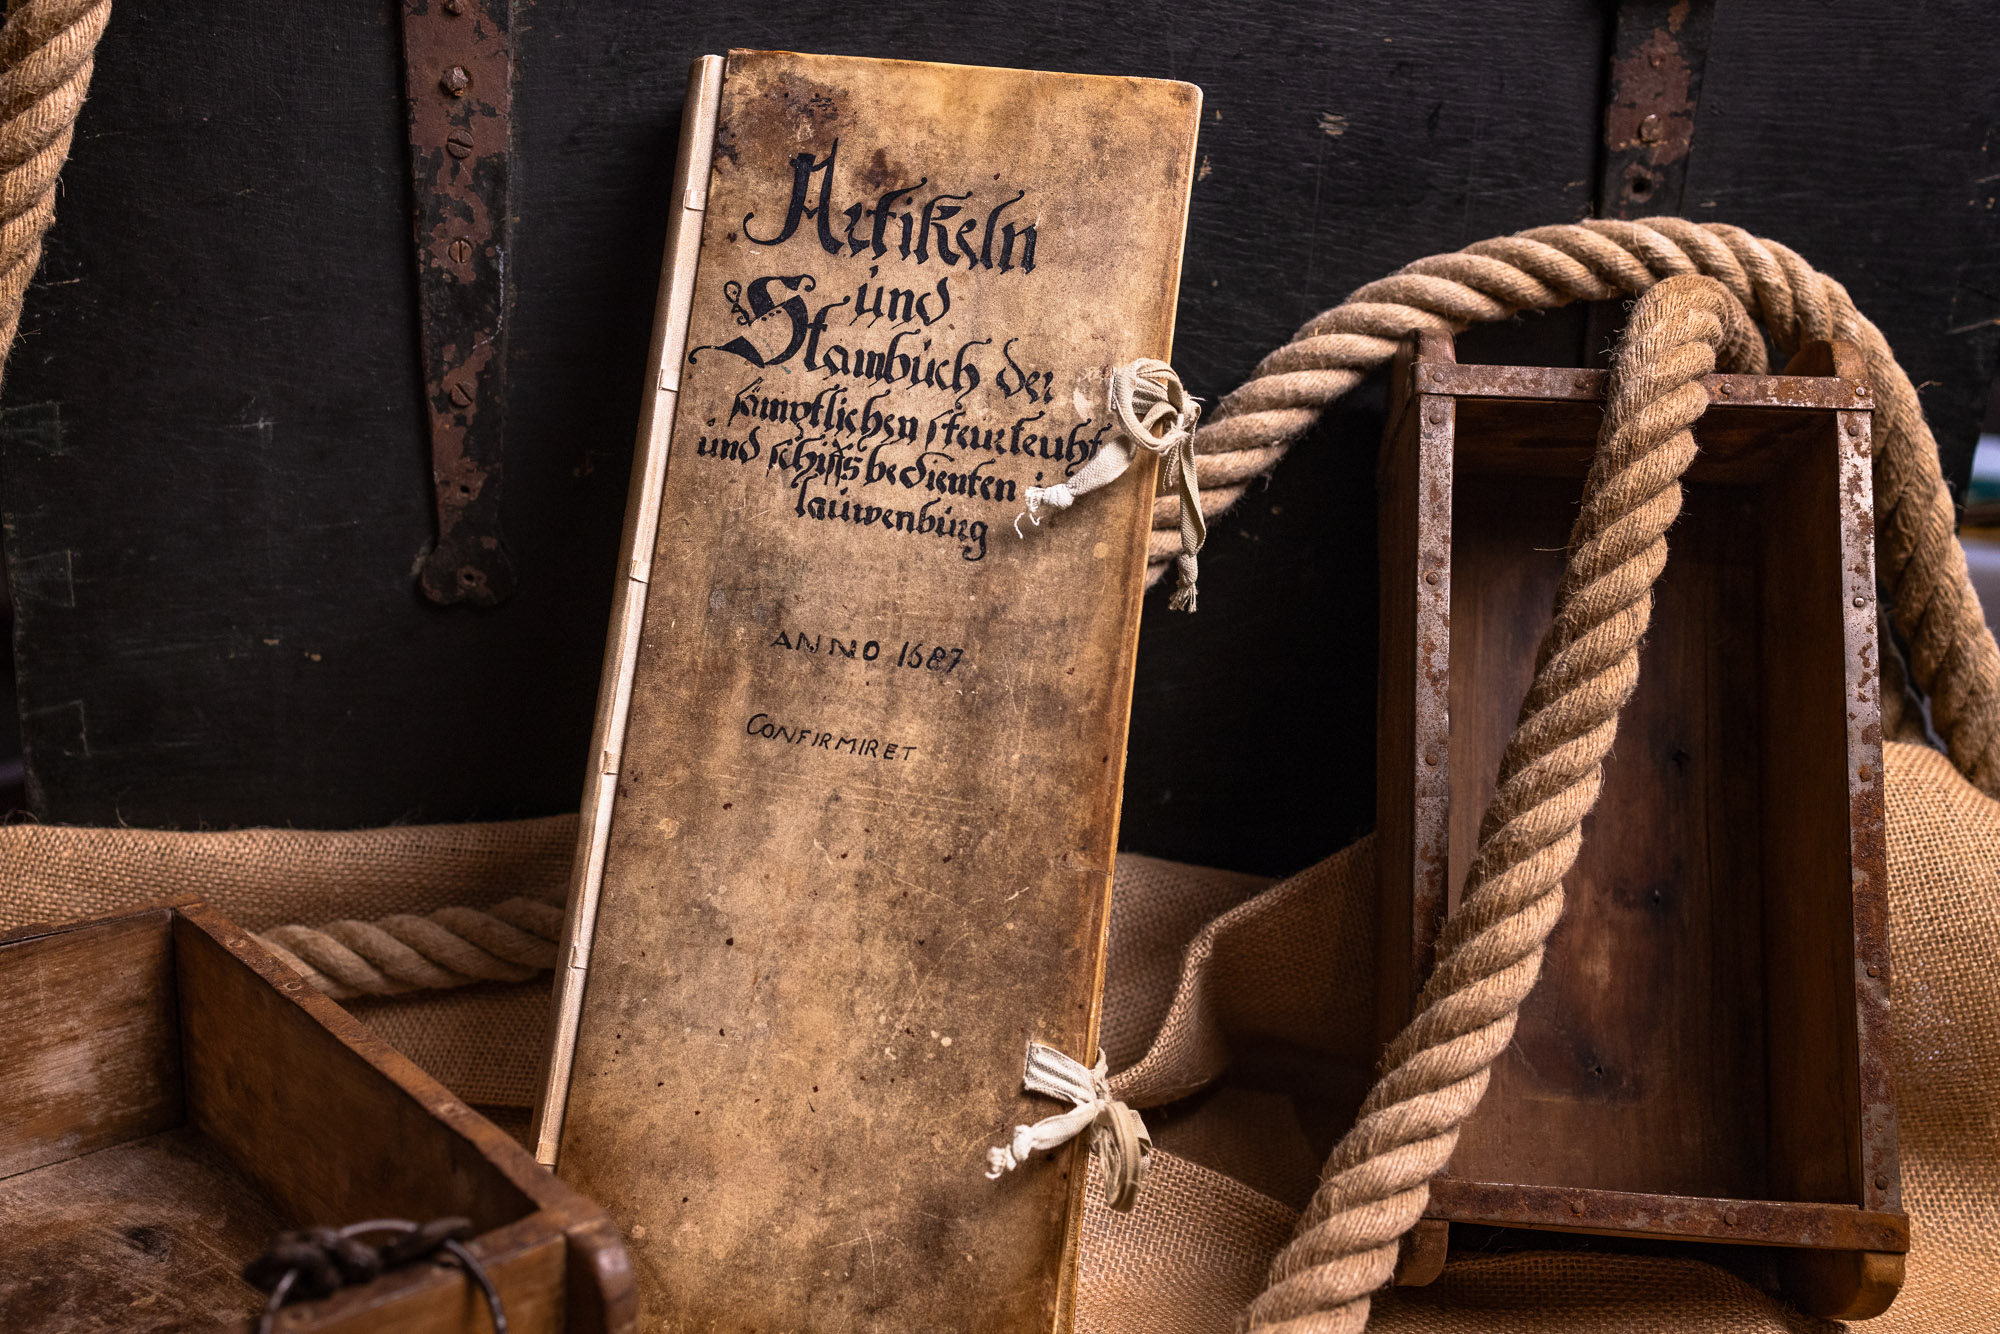 Artikeln
und
Stambuch der
sämptlichen steurleuht
und schifsbedienten
lauwenburg
ANNO 1687
CONFIRMIRET